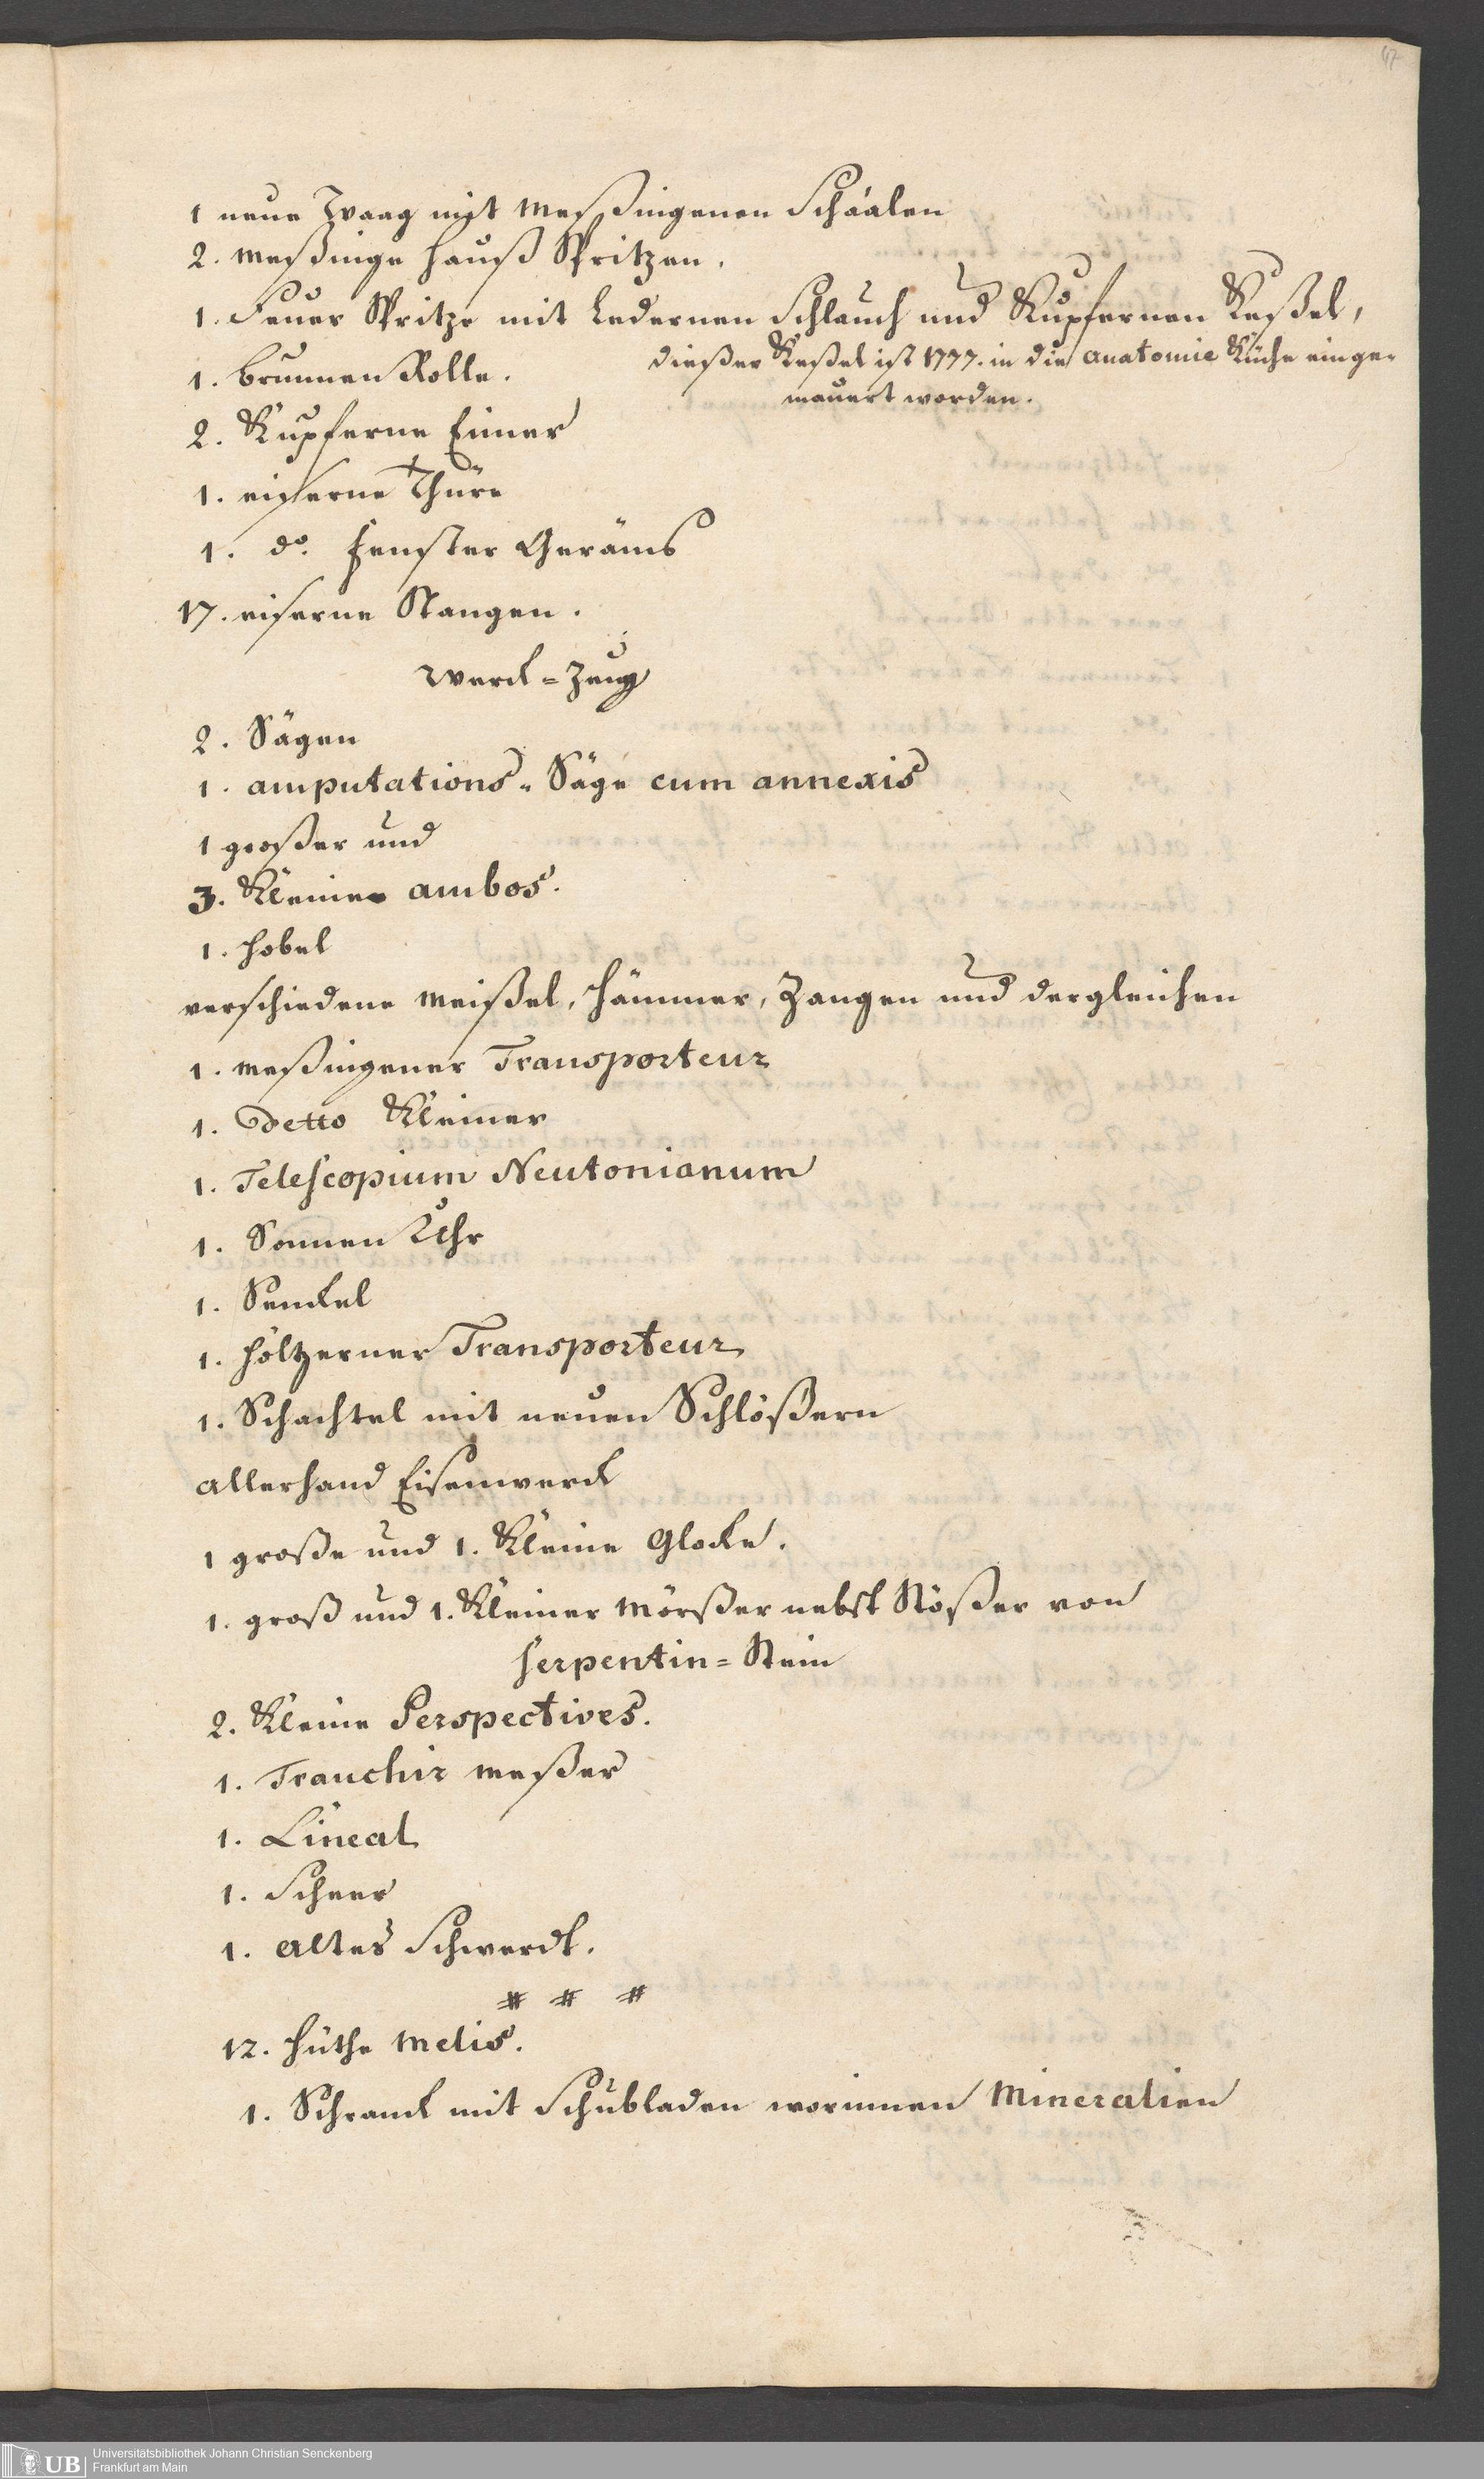 47
1 neue Waag mit Meßingenen Schäalen
2. Meßinge Hauß Spritzen.
1. Feuer Spritze mit Ledernen Schlauch und Kupfernen Keßel,
dießer Keßel ist 1777. in die Anatomie Küche einge-
mauert worden.
1. Brunnen Rolle.
2. Kupferne Eimer
1. eiserne Thüre
1. do. Fenster Geräms
17. eiserne Stangen.
Werck=Zeug
2. Sägen
1. amputations-Säge cum annexis
1 großer und
3. Kleine ambos.
1. Hobel
verschiedene Meißel, Hämmer, Zangen und dergleichen
1. Meßingener Transporteur
1. Detto Kleiner
1. Telescopium Neutonianum
1. Sonnen Uhr
1. Senckel
1. höltzerner Transporteur
1. Schachtel mit neuen Schlößern
Allerhand Eisenwerck
1 große und 1. Kleine Glocke.
1. groß und 1. Kleiner Mörßer nebst Stößer von
Serpentin=Stein
2. Kleine Perspectives.
1. Tranchir Meßer
1. Lineal
1. Scheer
1. altes Schwerdt.
# # #
12. Hüthe Melis.
1. Schranck mit Schubladen worinnen Mineralien
UB
Universitätsbibliothek Johann Christian Senckenberg
Frankfurt am Main